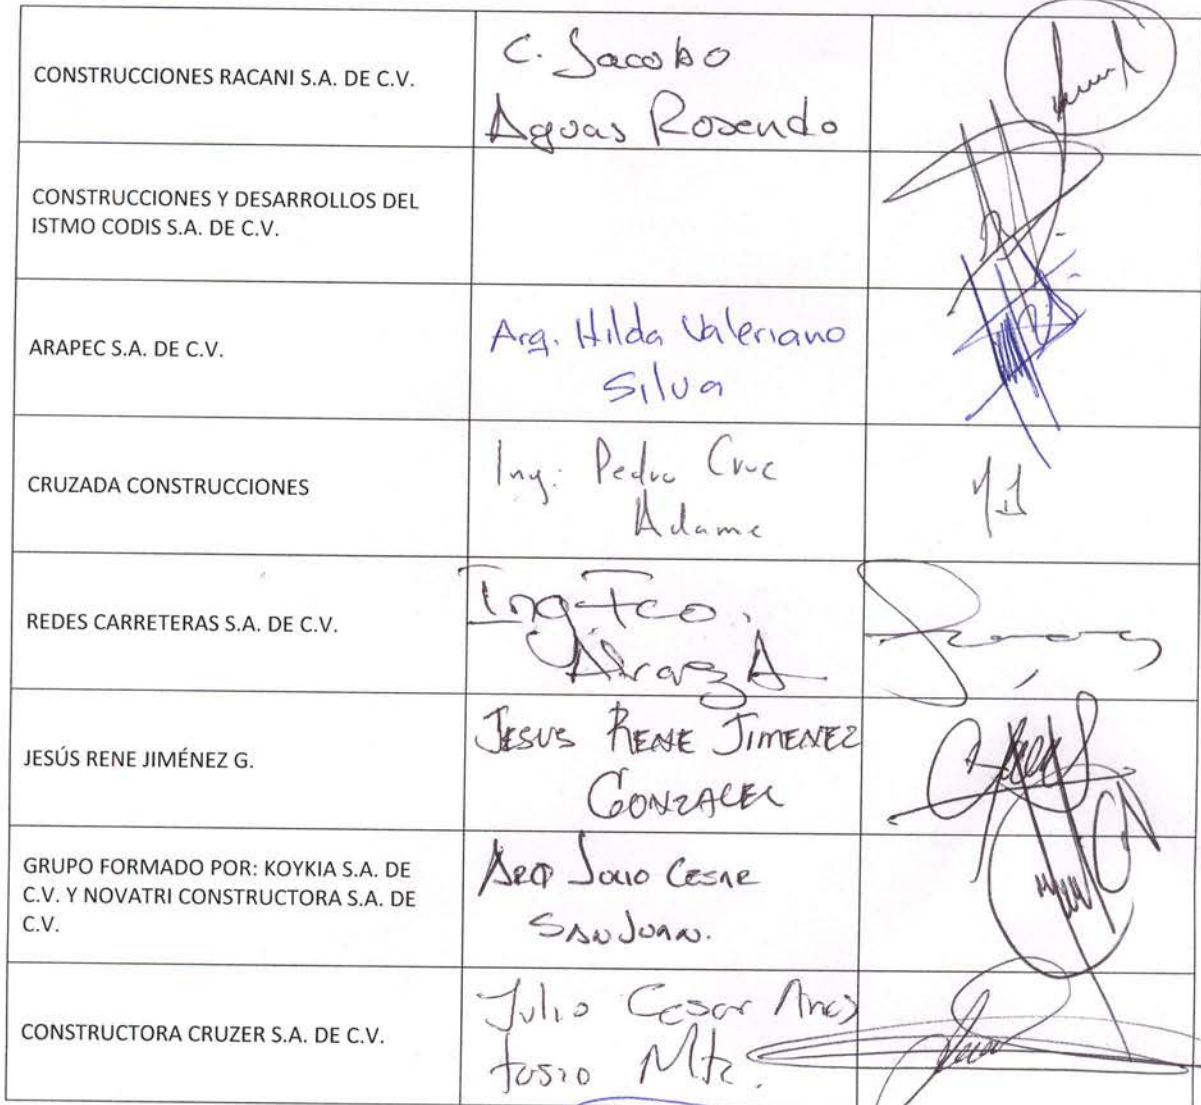 CONSTRUCCIONES RACANI S.A. DE C.V.
C. Jacobo
Aguas Rosendo
CONSTRUCCIONES Y DESARROLLOS DEL
ISTMO CODIS S.A. DE C.V.
ARAPEC S.A. DE C.V.
Arq. Hilda Valeriano
Silva
CRUZADA CONSTRUCCIONES
Ing. Pedro Cruz
Adame
REDES CARRETERAS S.A. DE C.V.
Ing. Fco.
JESÚS RENE JIMÉNEZ G.
JESUS RENE JIMENEZ
GONZALEZ
GRUPO FORMADO POR: KOYKIA S.A. DE
C.V. Y NOVATRI CONSTRUCTORA S.A. DE
C.V.
ARQ JULIO CESAR
SANJUAN.
CONSTRUCTORA CRUZER S.A. DE C.V.
Julio Cesar
Mtz.